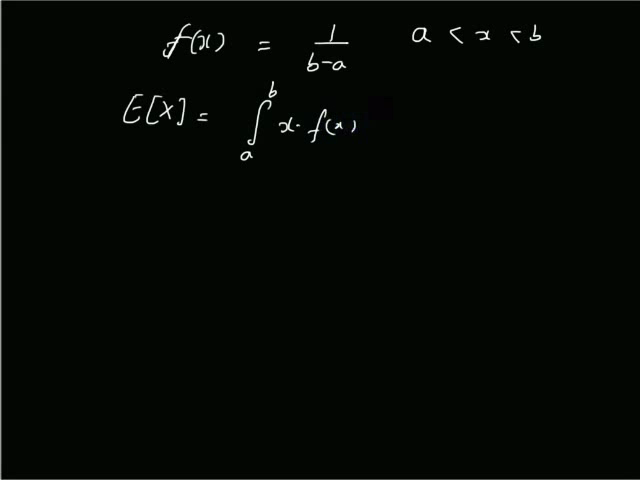 f(x) = 1/(b-a) a < x < b
E[X] = ∫_a^b x · f(x)